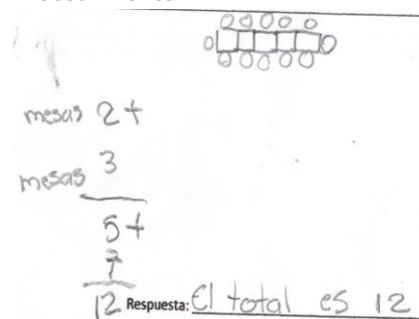 mesas 2+
mesas 3
5+
7
12 Respuesta: El total es 12